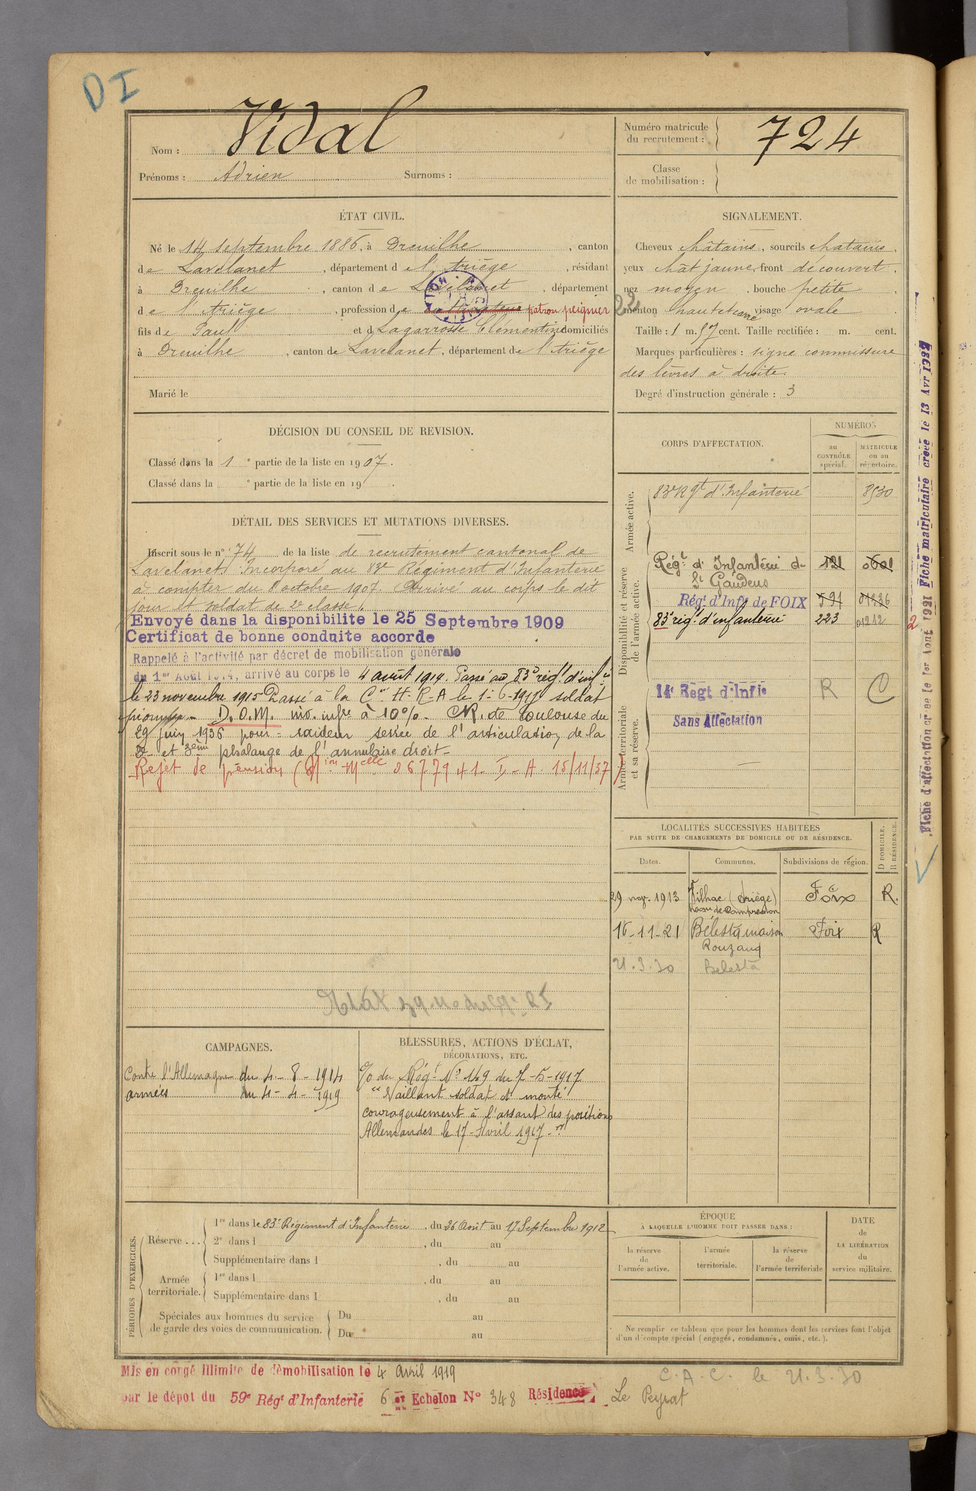 DI
Nom : Vidal
Prénoms : Adrien Surnoms :
Numéro matricule du recrutement : 724
Classe de mobilisation :
ÉTAT CIVIL.
Né le 14 septembre 1886, à Dreuilhe, canton
de Lavelanet, département de l'Ariège, résidant
à Dreuilhe, canton de Lavelanet, département
de l'Ariège, profession de patron peigneur
fils de Paul et de Lagarrosse Clémentine domiciliés
à Dreuilhe, canton de Lavelanet, département de l'Ariège
Marié le
SIGNALEMENT.
Cheveux châtains, sourcils châtains,
yeux chât jaune front découvert,
nez moyen, bouche petite,
menton visage ovale
Taille : 1 m. 57 cent. Taille rectifiée : m. cent.
Marques particulières : signe commissure
des lèvres à droite.
Degré d'instruction générale : 3
DÉCISION DU CONSEIL DE REVISION.
Classé dans la 1e partie de la liste en 1907.
Classé dans la e partie de la liste en 19
DÉTAIL DES SERVICES ET MUTATIONS DIVERSES.
Inscrit sous le n° 74 de la liste de recrutement cantonal de
Lavelanet. Incorporé au 83e Régiment d'Infanterie
à compter du 8 octobre 1907. Arrivé au corps le dit
jour et soldat de 2e classe.
Envoyé dans la disponibilité le 25 Septembre 1909
Certificat de bonne conduite accordé
Rappelé à l'activité par décret de mobilisation générale
du 1er Août 1914, arrivé au corps le 4 août 1914. Passé au 83e régt d'infie
le 23 novembre 1915 Passé à la Cie H.R.A le 1-6-1917 soldat
pionnier - D.O.M. inv. infre à 10%. CR. de Toulouse du
29 juin 1936 pour : raideur serrée de l'articulation de la
2e et 3ème phalange de l'annulaire droit -
Rejet de pension (Don Mlle 267941. I. A. 15/11/37)
CORPS D'AFFECTATION.
NUMÉROS
au CONTRÔLE spécial.
MATRICULE ou au répertoire.
Armée active.
83e Rgt d'Infanterie 8530
Disponibilité et réserve de l'armée active.
Régt d'Infanterie de St Gaudens
Régt d'Infie de FOIX
83e régt d'infanterie 223 01212
Armée territoriale et sa réserve.
14e Régt d'Infie R C
Sans Affectation
Fiche d'affectation créée le 1er Août 1931 Fiche matriculaire créée le 13 Avr 1932
LOCALITÉS SUCCESSIVES HABITÉES
PAR SUITE DE CHANGEMENTS DE DOMICILE OU DE RÉSIDENCE.
Dates. Communes. Subdivisions de région. D DOMICILE. R RÉSIDENCE.
29 nov. 1913 Tilhac (Ariège) Foix R.
16-11-21 Bélesta maison Rouzaud Foix R
21.3.30 Belesta
CAMPAGNES.
Contre l'Allemagne du 4-8-1914
armées au 4-4-1919
BLESSURES, ACTIONS D'ÉCLAT,
DÉCORATIONS, ETC.
O/ du Régt N° 149 du 7-5-1917
"Vaillant soldat est monté
courageusement à l'assaut des positions
Allemandes le 17 Avril 1917 - "
PÉRIODES D'EXERCICES.
Réserve ...
1re dans le 83e Régiment d'Infanterie, du 26 Août au 17 Septembre 1912
2e dans l , du au
Supplémentaire dans l , du au
Armée territoriale.
1re dans l , du au
Supplémentaire dans l , du au
Spéciales aux hommes du service de garde des voies de communication.
Du au
Du au
ÉPOQUE
A LAQUELLE L'HOMME DOIT PASSER DANS :
la réserve de l'armée active.
l'armée territoriale.
la réserve de l'armée territoriale
DATE de LA LIBÉRATION du service militaire.
Ne remplir ce tableau que pour les hommes dont les services font l'objet
d'un décompte spécial (engagés, condamnés, omis, etc.).
Mis en congé illimité de démobilisation le 4 Avril 1919
par le dépôt du 59e Régt d'Infanterie 6e Echelon N° 348 Résidence Le Peyrat
C.A.C. le 21.3.30